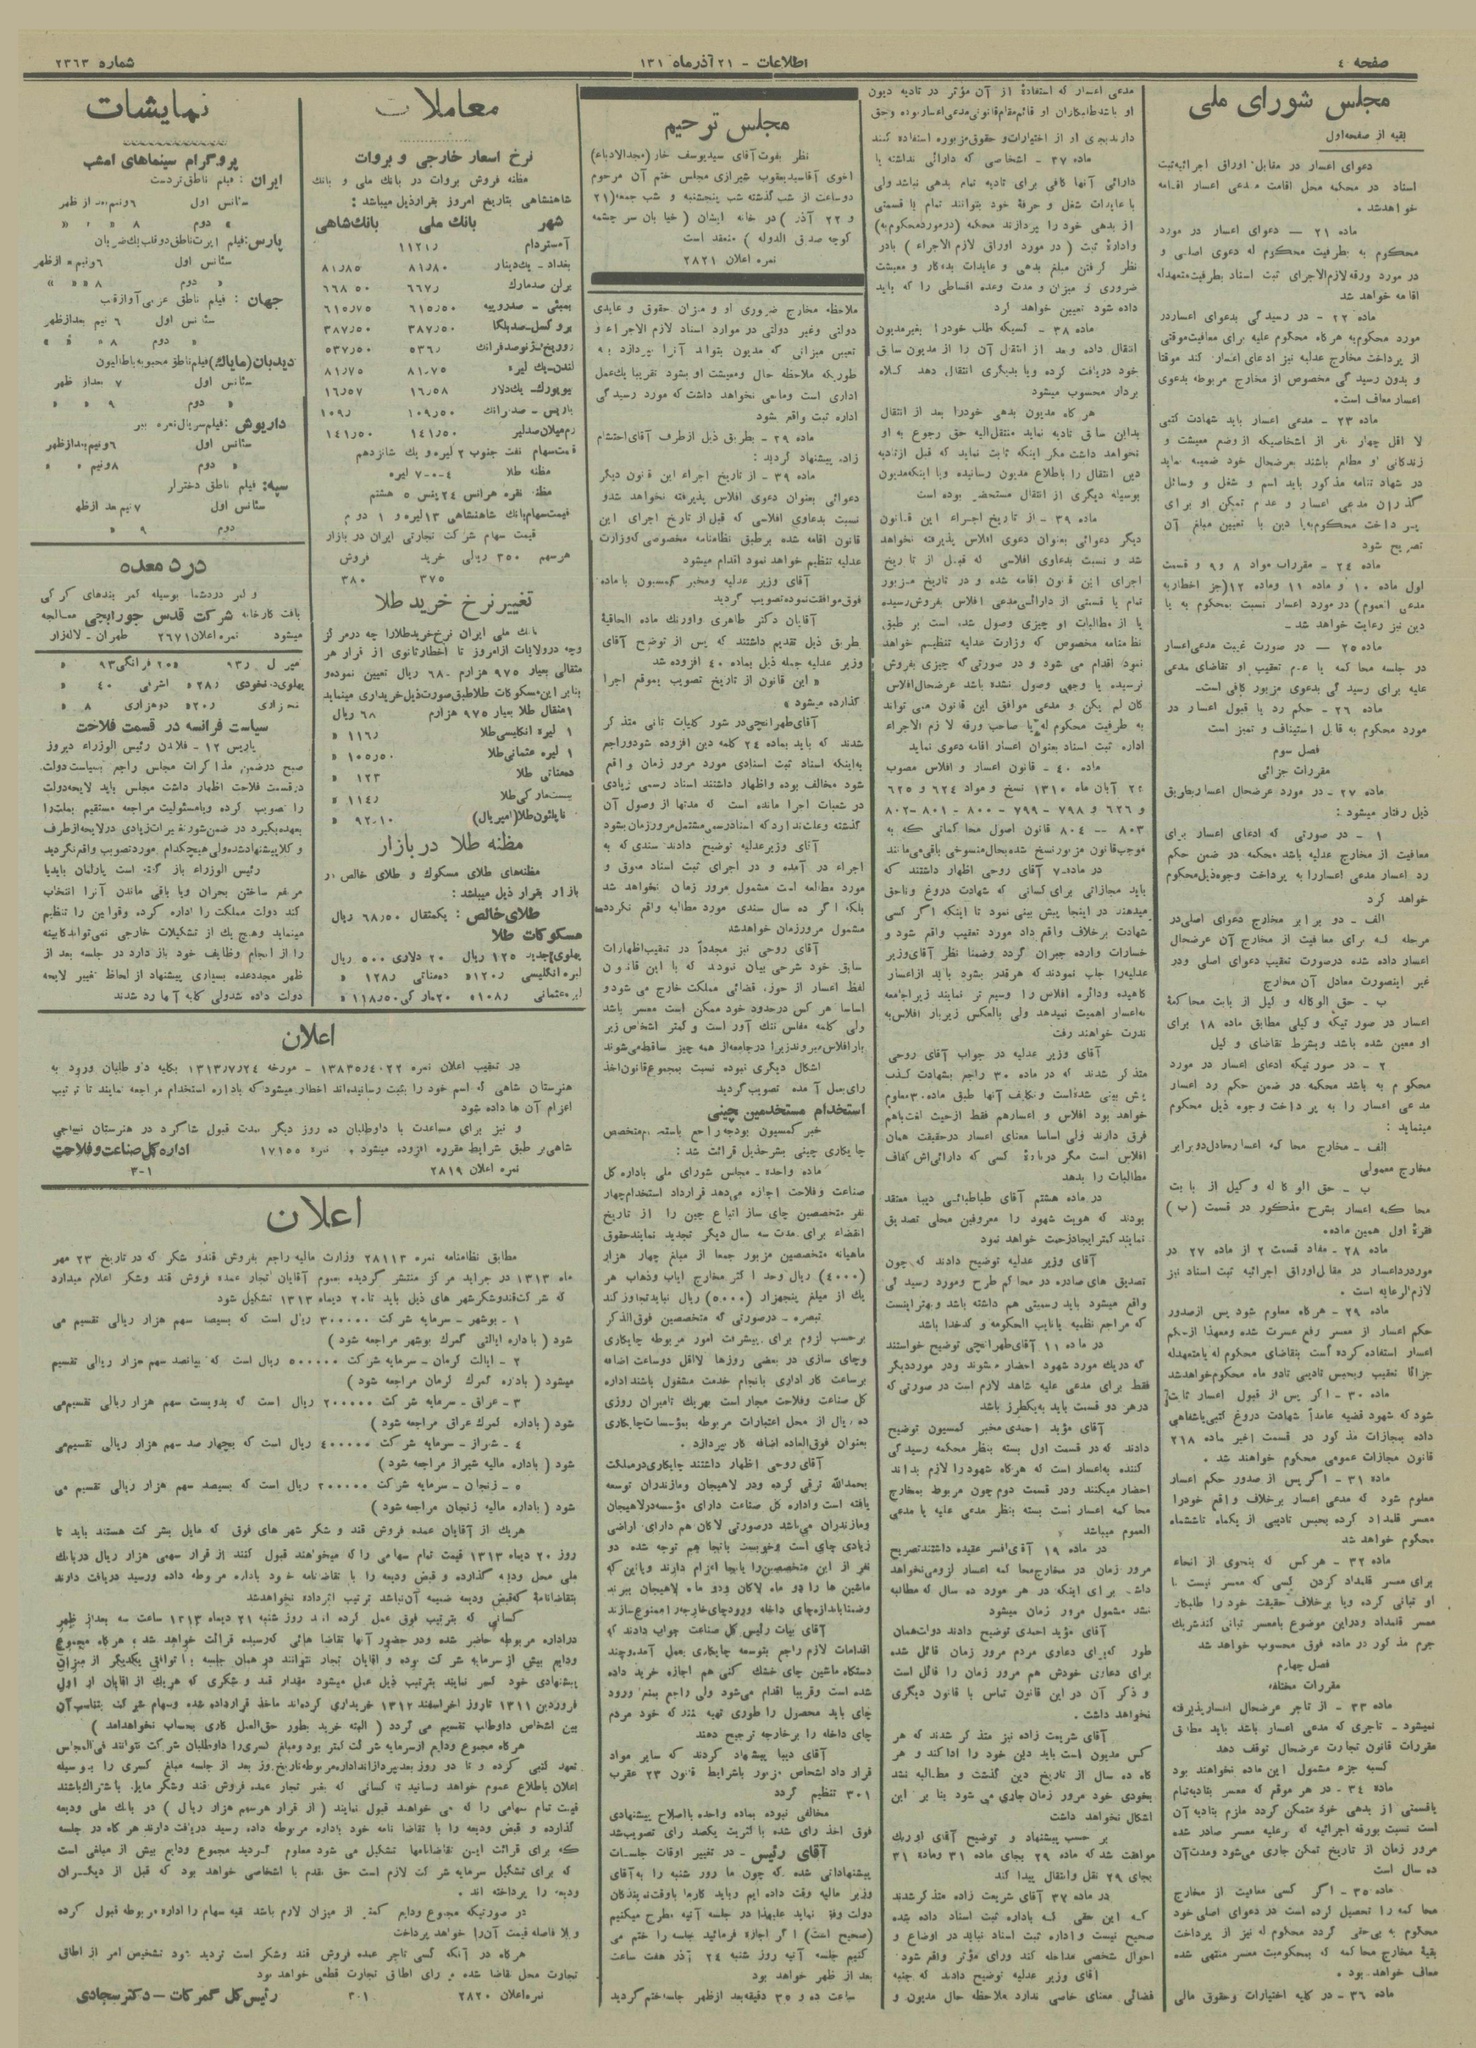 صفحه ٤
اطلاعات - ۲۱ آذر ماه ۱۳۱
شماره ۲۳۶۳
مجلس شورای ملی
بقیه از صفحه اول
دعوای اعسار در مقابل اوراق اجرائیه ثبت
اسناد در محکمه محل اقامت مدعی اعسار اقامه
خواهد شد .
ماده ۲۱ — دعوای اعسار در مورد
محکوم به بطرفیت محکوم له دعوی اصلی و
در مورد ورقه لازم الاجرای ثبت اسناد بطرفیت متعهدله
اقامه خواهد شد
ماده ۲۲ - در رسیدگی بدعوای اعسار در
مورد محکوم به هرگاه محکوم علیه برای معافیت موقتی
از پرداخت مخارج عدلیه نیز ادعای اعسار کند موقتا
و بدون رسیدگی مخصوص از مخارج مربوطه بدعوی
اعسار معاف است.
ماده ۲۳ - مدعی اعسار باید شهادت کتبی
لا اقل چهار نفر از اشخاصیکه از وضع معیشت و
زندگانی او مطلع باشند بعرضحال خود ضمیمه نماید
در شهادتنامه مذکور باید اسم و شغل و وسائل
گذران مدعی اعسار و عدم تمکن او برای
پرداخت محکوم به یا دین با تعیین مبلغ آن
تصریح شود
ماده ۲٤ - مقررات مواد ۸ و ۹ و قسمت
اول ماده ۱۰ و ماده ۱۱ و ماده ۱۲ (جز اخطار به
مدعی العموم) در مورد اعسار نسبت بمحکوم به یا
دین نیز رعایت خواهد شد -
ماده ۲۵ — در صورت غیبت مدعی اعسار
در جلسه محاکمه یا عدم تعقیب او تقاضای مدعی
علیه برای رسیدگی بدعوی مزبور کافی است.
ماده ۲۶ - حکم رد یا قبول اعسار در
مورد محکوم به قابل استیناف و تمیز است
فصل سوم
مقررات جزائی
ماده ۲۷ - در مورد عرضحال اعسار بطریق
ذیل رفتار میشود :
۱ - در صورتی که ادعای اعسار برای
معافیت از مخارج عدلیه باشد محکمه در ضمن حکم
رد اعسار مدعی اعسار را به پرداخت وجوه ذیل محکوم
خواهد کرد
الف - دو برابر مخارج دعوای اصلی در
مرحله که برای معافیت از مخارج آن عرضحال
اعسار داده شده در صورت تعقیب دعوای اصلی و در
غیر اینصورت معادل آن مخارج
ب - حق الوکاله وکیل از بابت محاکمه
اعسار در صورتیکه وکیلی مطابق ماده ۱۸ برای
او معین شده باشد و بشرط تقاضای وکیل
۲ - در صورتیکه ادعای اعسار در مورد
محکوم به باشد محکمه در ضمن حکم رد اعسار
مدعی اعسار را به پرداخت وجوه ذیل محکوم
مینماید :
الف - مخارج محاکمه اعسار معادل دو برابر
مخارج معمولی
ب - حق الوکاله وکیل از بابت
محاکمه اعسار بشرح مذکور در قسمت (ب)
فقرۀ اول همین ماده.
ماده ۲۸ - مفاد قسمت ۲ از ماده ۲۷ در
مورد رد اعسار در مقابل اوراق اجرائیه ثبت اسناد نیز
لازم الرعایه است .
ماده ۲۹ - هرگاه معلوم شود پس از صدور
حکم اعسار از معسر رفع عسرت شده و معهذا از حکم
اعسار استفاده کرده است بتقاضای محکوم له یا متعهدله
جزائاً تعقیب و بحبس تادیبی تا دو ماه محکوم خواهد شد
ماده ۳۰ - اگر پس از قبول اعسار ثابت
شود که شهود قضیه عامداً شهادت دروغ کتبی یا شفاهی
داده بمجازات مذکور در قسمت اخیر ماده ۲۱۸
قانون مجازات عمومی محکوم خواهند شد .
ماده ۳۱ - اگر پس از صدور حکم اعسار
معلوم شود که مدعی اعسار برخلاف واقع خود را
معسر قلمداد کرده بحبس تادیبی از یکماه تا ششماه
محکوم خواهد شد
ماده ۳۲ - هر کس که بنحوی از انحاء
برای معسر قلمداد کردن کسی که معسر نیست با
او تبانی کرده و یا برخلاف حقیقت خود را طلبکار
معسر قلمداد و در این موضوع با معسر تبانی کند شریک
جرم مذکور در ماده فوق محسوب خواهد شد
فصل چهارم
مقررات مختلفه
ماده ۳۳ - از تاجر عرضحال اعسار پذیرفته
نمیشود - تاجری که مدعی اعسار باشد باید مطابق
مقررات قانون تجارت عرضحال توقف دهد
کسبه جزء مشمول این ماده نخواهند بود
ماده ۳٤ - در هر موقع که معسر بتادیه تمام
یا قسمتی از بدهی خود متمکن گردد ملزم بتادیه آن
است نسبت بورقه اجرائیه که برعلیه معسر صادر شده
مرور زمان از تاریخ تمکن جاری می‌شود و مدت آن
ده سال است
ماده ۳۵ - اگر کسی معافیت از مخارج
محاکمه را تحصیل کرده است در دعوای اصلی خود
محکوم به بی‌حقی گردد محکوم له نیز از پرداخت
بقیۀ مخارج محاکمه که بمحکومیت معسر منتهی شده
معاف خواهد بود .
ماده ۳۶ - در کلیه اختیارات و حقوق مالی
مدعی اعسار که استفادۀ از آن مؤثر در تادیه دیون
او باشد طلبکاران او قائم مقام قانونی مدعی اعسار بوده و حق
دارند بجای او از اختیارات و حقوق مزبوره استفاده کنند
ماده ۳۷ - اشخاصی که دارائی نداشته یا
دارائی آنها کافی برای تادیه تمام بدهی نباشد ولی
با عایدات شغل و حرفۀ خود بتوانند تمام یا قسمتی
از بدهی خود را بپردازند محکمه (در مورد محکوم به)
و ادارۀ ثبت (در مورد اوراق لازم الاجراء) با در
نظر گرفتن مبلغ بدهی و عایدات بدهکار و معیشت
ضروری او میزان و مدت وعده اقساطی را که باید
داده شود تعیین خواهد کرد
ماده ۳۸ - کسیکه طلب خود را بغیر مدیون
انتقال داده و بعد از انتقال آن را از مدیون سابق
خود دریافت کرده و یا بدیگری انتقال دهد کلاه
بردار محسوب میشود
هرگاه مدیون بدهی خود را بعد از انتقال
بداین سابق تادیه نماید منتقل الیه حق رجوع به او
نخواهد داشت مگر اینکه ثابت نماید که قبل از تادیه
دین انتقال را باطلاع مدیون رسانیده و یا اینکه مدیون
بوسیله دیگری از انتقال مستحضر بوده است
ماده ۳۹ - از تاریخ اجراء این قانون
دیگر دعوائی بعنوان دعوی افلاس پذیرفته نخواهد
شد و نسبت بدعاوی افلاسی که قبل از تاریخ
اجرای این قانون اقامه شده و در تاریخ مزبور
تمام یا قسمتی از دارائی مدعی افلاس بفروش رسیده
یا از مطالبات او چیزی وصول شده است بر طبق
نظامنامه مخصوص که وزارت عدلیه تنظیم خواهد
نمود اقدام می شود و در صورتی که چیزی بفروش
نرسیده یا وجهی وصول نشده باشد عرضحال افلاس
کان لم یکن و مدعی موافق این قانون می تواند
به طرفیت محکوم له یا صاحب ورقه لازم الاجراء
اداره ثبت اسناد بعنوان اعسار اقامه دعوی نماید
ماده ٤۰ - قانون اعسار و افلاس مصوب
۲۵ آبان ماه ۱۳۱۰ نسخ و مواد ٦۲٤ و ٦۲٥
و ٦۲٦ و ۷۹۸ - ۷۹۹ - ۸۰۰ - ۸۰۱ - ۸۰۲
۸۰۳ -- ۸۰٤ قانون اصول محاکماتی که به
موجب قانون مزبور نسخ شده بحال منسوخی باقی می‌مانند
در ماده ۷ آقای روحی اظهار داشتند که
باید مجازاتی برای کسانی که شهادت دروغ و ناحق
میدهند در اینجا پیش بینی نمود تا اینکه اگر کسی
شهادت برخلاف واقع داد مورد تعقیب واقع شود و
خسارات وارده جبران گردد و ضمنا نظر آقای وزیر
عدلیه را جلب نمودند که هر قدر بشود باید از اعسار
کاهیده و دائره افلاس را وسیع تر نمایند زیرا جامعه
به اعسار اهمیت نمیدهد ولی بالعکس زیر بار افلاس به
ندرت خواهند رفت
آقای وزیر عدلیه در جواب آقای روحی
متذکر شدند که در ماده ۳۰ راجع بشهادت کذب
پیش بینی شده است و تکلیف آنها طبق ماده ۳۰ معلوم
خواهد بود افلاس و اعسار هم فقط از حیث لغت باهم
فرق دارند ولی اساسا معنای اعسار در حقیقت همان
افلاس است مگر دربارۀ کسی که دارائی‌اش کفاف
مطالبات را بدهد
در ماده هشتم آقای طباطبائی دیبا معتقد
بودند که هویت شهود را معروفین محلی تصدیق
نمایند کمتر ایجاد زحمت خواهد نمود
آقای وزیر عدلیه توضیح دادند که چون
تصدیق های صادره در محاکم طرح و مورد رسیدگی
واقع میشود باید رسمیتی هم داشته باشد و بهتر اینست
که مراجع نظمیه یا نایب الحکومه و کدخدا باشد
در ماده ۱۱ آقای طهرانچی توضیح خواستند
که در یک مورد شهود احضار میشوند و در مورد دیگر
فقط برای مدعی علیه شاهد لازم است در صورتی که
در هر دو قسمت باید به یک طرز باشد
آقای مؤید احمدی مخبر کمسیون توضیح
دادند که در قسمت اول بسته بنظر محکمه رسیدگی
کننده به اعسار است که هرگاه شهود را لازم بداند
احضار میکنند و در قسمت دوم چون مربوط بمخارج
محاکمه اعسار است بسته بنظر مدعی علیه یا مدعی
العموم میباشد
در ماده ۱۹ آقای افسر عقیده داشتند تصریح
مرور زمان در مخارج محاکمه اعسار لزومی نخواهد
داشت برای اینکه در هر مورد ده سال که مطالبه
نشد مشمول مرور زمان میشود
آقای مؤید احمدی توضیح دادند دولت همان
طور که برای دعاوی مردم مرور زمان قائل شده
برای دعاوی خودش هم مرور زمان را قائل است
و ذکر آن در این قانون تماس با قانون دیگری
نخواهد داشت .
آقای شریعت زاده نیز متذکر شدند که هر
کس مدیون است باید دین خود را ادا کند و هر
گاه ده سال از تاریخ دین گذشت و مطالبه نشد
بخودی خود مرور زمان جاری می شود بنا بر این
اشکال نخواهد داشت
بر حسب پیشنهاد و توضیح آقای اورنگ
موافقت شد که ماده ۲۹ بجای ماده ۳۱ و ماده ۳۱
بجای ۲۹ نقل و انتقال پیدا کند
در ماده ۳۷ آقای شریعت زاده متذکر شدند
که این حقی که باداره ثبت اسناد داده شده
صحیح نیست و اداره ثبت اسناد نباید در اوضاع و
احوال شخصی مداخله کند و رای مؤثر واقع شود
آقای وزیر عدلیه توضیح دادند که جنبه
قضائی معنای خاصی ندارد ملاحظه حال مدیون و
مجلس ترحیم
نظر بفوت آقای سید یوسف خان (مجدالادباء)
اخوی آقا سید یعقوب شیرازی مجلس ختم آن مرحوم
دو ساعت از شب گذشته شب پنجشنبه و شب جمعه (۲۱
و ۲۲ آذر) در خانه ایشان (خیابان سر چشمه
کوچه صدیق الدوله) منعقد است
نمره اعلان ۲۸۲۱
ملاحظه مخارج ضروری او و میزان حقوق و عایدی
دولتی و غیر دولتی در موارد اسناد لازم الاجراء و
تعیین میزانی که مدیون بتواند آنرا بپردازد به
طوریکه ملاحظه حال و معیشت او بشود تقریبا یک عمل
اداری است و مانعی نخواهد داشت که مورد رسیدگی
اداره ثبت واقع شود
ماده ۲۹ - بطریق ذیل از طرف آقای احتشام
زاده پیشنهاد گردید :
ماده ۳۹ - از تاریخ اجراء این قانون دیگر
دعوائی بعنوان دعوی افلاس پذیرفته نخواهد شد و
نسبت بدعاوی افلاسی که قبل از تاریخ اجرای این
قانون اقامه شده بر طبق نظامنامه مخصوصی که وزارت
عدلیه تنظیم خواهد نمود اقدام میشود
آقای وزیر عدلیه و مخبر کمسیون با ماده
فوق موافقت نموده تصویب گردید
آقایان دکتر طاهری و اورنگ ماده الحاقیۀ
بطریق ذیل تقدیم داشتند که پس از توضیح آقای
وزیر عدلیه جمله ذیل بماده ٤۰ افزوده شد
« این قانون از تاریخ تصویب بموقع اجرا
گذارده میشود »
آقای طهرانچی در شور کلیات ثانی متذکر
شدند که باید بماده ۲٤ کلمه دین افزوده شود و راجع
به اینکه اسناد ثبت اسنادی مورد مرور زمان واقع
شود مخالف بوده و اظهار داشتند اسناد رسمی زیادی
در شعبات اجرا مانده است که مدتها از وصول آن
گذشته و علت ندارد که اسناد رسمی مشمل مرور زمان بشود
آقای وزیر عدلیه توضیح دادند سندی که به
اجراء در آمده و در اجرای ثبت اسناد معوق و
مورد مطالعه است مشمول مرور زمان نخواهد شد
بلکه اگر ده سال سندی مورد مطالبه واقع نگردد
مشمول مرور زمان خواهد شد
آقای روحی نیز مجدداً در تعقیب اظهارات
سابق خود شرحی بیان نمودند که با این قانون
لفظ اعسار از حوزه قضائی مملکت خارج می شود و
اساسا هر کس در حدود خود ممکن است معسر باشد
ولی کلمه مفلس ننگ آور است و کمتر اشخاص زیر
بار افلاس میروند زیرا در جامعه از همه چیز ساقط می‌شوند
اشکال دیگری نبوده نسبت بمجموع قانون اخذ
رای بعمل آمده تصویب گردید
استخدام مستخدمین چینی
خبر کمسیون بودجه راجع باستخدام متخصص
چایکاری چینی بشرح ذیل قرائت شد :
ماده واحده - مجلس شورای ملی باداره کل
صناعت و فلاحت اجازه میدهد قرارداد استخدام چهار
نفر متخصصین چای ساز اتباع چین را از تاریخ
انقضاء برای مدت سه سال دیگر تجدید نماید حقوق
ماهیانه متخصصین مزبور جمعا از مبلغ چهار هزار
(٤۰۰۰) ریال و حد اکثر مخارج ایاب و ذهاب هر
یک از مبلغ پنجهزار (۵۰۰۰) ریال نباید تجاوز کند
تبصره - در صورتی که متخصصین فوق الذکر
برحسب لزوم برای پیشرفت امور مربوطه چایکاری
و چای سازی در بعضی روزها لااقل دو ساعت اضافه
بر ساعت کار اداری بانجام خدمت مشغول باشند اداره
کل صناعت و فلاحت مجاز است بهر یک تا میزان روزی
ده ریال از محل اعتبارات مربوطه بمؤسسات چایکاری
بعنوان فوق العاده اضافه کار بپردازد .
آقای روحی اظهار داشتند چایکاری در مملکت
بحمدالله ترقی کرده و در لاهیجان و مازندران توسعه
یافته است و اداره کل صناعت دارای مؤسسه در لاهیجان
و مازندران می‌باشد در صورتی لاکان هم دارای اراضی
زیادی چای است و خوبست بآنجا هم توجه شده دو
نفر از این متخصصین را بآنجا اعزام دارند و یا این که
ماشین ها را دو ماه لاکان و دو ماه لاهیجان ببرند
و ضمنا باندازه چای داخله ورود چای خارجه را ممنوع سازند
آقای بیات رئیس کل صناعت جواب دادند که
اقدامات لازم راجع بتوسعه چایکاری بعمل آمده و چند
دستگاه ماشین چای خشک کنی هم اجازه خرید داده
شده است و قریبا اقدام می‌شود ولی راجع بمنع ورود
چای باید محصول را طوری تهیه کنند که خود مردم
چای داخله را برخارجه ترجیح دهند
آقای دیبا پیشنهاد کردند که سایر مواد
قرارداد اشخاص مزبور با شرایط قانون ۲۳ عقرب
۳۰۱ تنظیم گردد
مخالفی نبوده بماده واحده با اصلاح پیشنهادی
فوق اخذ رای شده با کثریت یکصد رای تصویب شد
آقای رئیس - در تغییر اوقات جلسات
پیشنهاداتی شده که چون ما روز شنبه را به آقای
وزیر مالیه وقت داده ایم و باید کارها باوقت نمایندگان
دولت وفق نماید علیهذا در جلسه آتیه مطرح میکنیم
(صحیح است) اگر اجازه فرمائید جلسه را ختم می
کنیم جلسه آتیه روز شنبه ۲٤ آذر هفت ساعت
بعد از ظهر خواهد بود
ساعت ده و ۳۵ دقیقه بعد از ظهر جلسه ختم گردید
معاملات
نرخ اسعار خارجی و بروات
مظنه فروش بروات در بانک ملی و بانک
شاهنشاهی بتاریخ امروز بقرار ذیل میباشد :
شهر بانک ملی بانک شاهی
آمستردام ۱۱۲۱ر
بغداد - یک دینار ۸۱ر۸۰ ۸۱ر۸۵
برلن صد مارک ٦٦۷ر ٦٦۸ ۵۰
بمبئی - صد روپیه ٦۱۵ر۵۰ ٦۱۵ر۷۵
بروکسل - صد بلگا ۳۸۷ر۵۰ ۳۸۷ر۵۰
زوریخ ژنو صد فرانک ۵۳٦ر ۵۳۷ر۵۰
لندن - یک لیره ۸۱ر۷۵ ۸۱ر۷۵
نیویورک - یک دلار ۱٦ر۵۸ ۱٦ر۵۷
پاریس - صد فرانک ۱۰۹ر۵۰ ۱۰۹ر
رم میلان صد لیر ۱٤۱ر۵۰ ۱٤۱ر۵۰
قیمت سهام نفت جنوب ۲ لیره و یک شانزدهم
مظنه طلا ٤-۰-۷ لیره
مظنه نقره هر انس ۲٤ پنس ۵ هشتم
قیمت سهام بانک شاهنشاهی ۱۳ لیره و ۱ دوم
قیمت سهام شرکت تجارتی ایران در بازار
هر سهم ۳۵۰ ریالی خرید فروش
۳۷۵ ۳۸۰
تغییر نرخ خرید طلا
بانک ملی ایران نرخ خرید طلا را چه در مرکز
و چه در ولایات از امروز تا اخطار ثانوی از قرار هر
مثقالی بعیار ۹۷۵ هزارم ٦۸۰ ریال تعیین نموده و
بنابر این مسکوکات طلا طبق صورت ذیل خریداری مینماید
۱ مثقال طلا بعیار ۹۷۵ هزارم ٦۸ ریال
۱ لیره انگلیسی طلا ۱۱٦ر »
۱ لیره عثمانی طلا ۱۰۵ر۵۰ »
دهمناتی طلا ۱۲۳ »
بیست مارکی طلا ۱۱٤ر »
ناپلئون طلا (امپریال) ۹۲ر۱۰ »
مظنه طلا در بازار
مظنه‌های طلای مسکوک و طلای خالص در
بازار بقرار ذیل میباشد :
طلای خالص : یکمثقال ٦۸ر۵۰ ریال
مسکوکات طلا
پهلوی جدید ۱۲۵ ریال ۲۰ دلاری ۵۰۰ ریال
لیره انگلیسی ۱۲۰ر » دهمناتی ۱۲۸ر »
لیره عثمانی ۱۰۸ر » ۲۰ مارکی ۱۱۸ر۵۰ »
نمایشات
پروگرام سینماهای امشب
ایران : فیلم ناطق تردست
سئانس اول ٦ و نیم بعد از ظهر
« دوم ۸ » »
پارس : فیلم ایرت ناطق دو قلب یک ضربان
سئانس اول ٦ و نیم بعد از ظهر
« دوم ۸ » »
جهان : فیلم ناطق عربی آواز قلب
سئانس اول ٦ نیم بعد از ظهر
« دوم ۸ » »
دیدبان (مایاک) فیلم ناطق محبوبه با طالیون
سئانس اول ۷ بعد از ظهر
« دوم ۹ » »
داریوش : فیلم سریال نعره ببر
سئانس اول ٦ و نیم بعد از ظهر
« دوم ۸ و نیم » »
سپه : فیلم ناطق دختر لر
سئانس اول ۷ نیم بعد از ظهر
دوم ۹ »
درد معده
و کمر درد شما بوسیله کمر بندهای کرکی
بافت کارخانه شرکت قدس جورابچی معالجه
میشود نمره اعلان ۲٦۷۱ طهران - لاله‌زار
»۲۰ فرانکی ۹۳ »
پهلوی د. نخودی ۲۸ر » اشرفی ٤۰ »
۲۰ر » دو هزاری ۸ »
سیاست فرانسه در قسمت فلاحت
پاریس ۱۲ - فلاندن رئیس الوزراء دیروز
صبح در ضمن مذاکرات مجلس راجع بسیاست دولت
در قسمت فلاحت اظهار داشت مجلس باید لایحه دولت
را تصویب کرده و یا مسئولیت مراجعه مستقیم بملت را
بعهده بگیرد در ضمن شور تغییرات زیادی در لایحه از طرف
وکلا پیشنهاد شده ولی هیچکدام مورد تصویب واقع نگردید
رئیس الوزراء باز گفته است پارلمان باید یا
مرتفع ساختن بحران و یا باقی ماندن آنرا انتخاب
کند دولت مملکت را اداره کرده و قوانین را تنظیم
مینماید و هیچ یک از تشکیلات خارجی نمی‌تواند کابینه
را از انجام وظایف خود باز دارد در جلسه بعد از
ظهر مجدد عده بسیاری پیشنهاد از لحاظ تغییر لایحه
دولت داده شد ولی کلیه آنها رد شدند
اعلان
در تعقیب اعلان نمره ۱۳۸۳۵/٤۰۲۲ - مورخه ۱۳۱۳/۷/۲٤ بکلیه داوطلبان ورود به
هنرستان شاهی که اسم خود را بثبت رسانیده‌اند اخطار میشود که باداره استخدام مراجعه نمایند تا ترتیب
اعزام آن ها داده شود
و نیز برای مساعدت با داوطلبان ده روز دیگر بمدت قبول شاگرد در هنرستان نساجی
شاهی بر طبق شرایط مقرره افزوده میشود . نمره ۱۷۱۵۵ اداره کل صناعت و فلاحت
نمره اعلان ۲۸۱۹ ۱-۳
اعلان
مطابق نظامنامه نمره ۲۸۱۱۳ وزارت مالیه راجع بفروش قند و شکر که در تاریخ ۲۳ مهر
ماه ۱۳۱۳ در جراید مرکز منتشر گردیده بعموم آقایان تجار عمده فروش قند و شکر اعلام میدارد
که شرکت قند و شکر شهرهای ذیل باید تا ۲۰ دیماه ۱۳۱۳ تشکیل شود
۱ - بوشهر - سرمایه شرکت ۳۰۰۰۰۰ ریال است که بسیصد سهم هزار ریالی تقسیم می
شود ( باداره ایالتی گمرک بوشهر مراجعه شود )
۲ - ایالت کرمان - سرمایه شرکت ۵۰۰۰۰۰ ریال است که بپانصد سهم هزار ریالی تقسیم
میشود ( باداره گمرک کرمان مراجعه شود )
۳ - عراق - سرمایه شرکت ۲۰۰۰۰۰ ریال است که بدویست سهم هزار ریالی تقسیم می
شود ( باداره گمرک عراق مراجعه شود )
٤ - شیراز - سرمایه شرکت ٤۰۰۰۰۰ ریال است که بچهار صد سهم هزار ریالی تقسیم می
شود ( باداره مالیه شیراز مراجعه شود )
۵ - زنجان - سرمایه شرکت ۳۰۰۰۰۰ ریال است که بسیصد سهم هزار ریالی تقسیم می
شود ( باداره مالیه زنجان مراجعه شود )
هر یک از آقایان عمده فروش قند و شکر شهرهای فوق که مایل بشرکت هستند باید تا
روز ۲۰ دیماه ۱۳۱۳ قیمت تمام سهامی را که میخواهند قبول کنند از قرار سهمی هزار ریال در بانک
ملی محل ودیعه گذارده و قبض ودیعه را با تقاضانامه خود باداره مربوطه داده و رسید دریافت دارند
بتقاضانامۀ که قبض ودیعه ضمیمه آن نباشد ترتیب اثر داده نخواهد شد
کسانی که بترتیب فوق عمل کرده اند روز شنبه ۲۱ دیماه ۱۳۱۳ ساعت سه بعد از ظهر
در اداره مربوطه حاضر شده و در حضور آنها تقاضا هائی که رسیده قرائت خواهد شد ، هرگاه مجموع
ودایع بیش از سرمایه شرکت بوده و آقایان تجار نتوانند در همان جلسه با توافق یکدیگر از میزان
پیشنهادی خود کسر نمایند بترتیب ذیل عمل میشود مقدار قند و شکری که هر یک از آقایان از اول
فروردین ۱۳۱۱ تا روز آخر اسفند ۱۳۱۲ خریداری کرده‌اند ماخذ قرار داده شده و سهام شرکت بتناسب آن
بین اشخاص داوطلب تقسیم می گردد ( البته خرید بطور حق العمل کاری بحساب نخواهد آمد )
هرگاه مجموع ودایع از سرمایه شرکت کمتر بود و مبلغ کسری را داوطلبان شرکت نتوانند فی المجلس
تعهد کتبی کرده و تا دو روز بعد بپردازند اداره مربوطه تا پنج روز بعد از جلسه مبلغ کسری را بوسیله
اعلان باطلاع عموم خواهد رسانید تا کسانی که بغیر تجار عمده فروش قند و شکر مایل باشتراک باشند
قیمت تمام سهامی را که می خواهند قبول نمایند ( از قرار هر سهم هزار ریال ) در بانک ملی ودیعه
گذارده و قبض ودیعه را با تقاضا نامه خود باداره مربوطه داده رسید دریافت دارند هر گاه در جلسه
که برای قرائت این تقاضانامها تشکیل می شود معلوم گردید مجموع ودایع بیش از مبلغی است
که برای تشکیل سرمایه شرکت لازم است حق تقدم با اشخاصی خواهد بود که قبل از دیگران
ودیعه را پرداخته اند .
در صورتیکه مجموع ودایع کمتر از میزان لازم باشد بقیه سهام را اداره مربوطه قبول کرده
و بلا فاصله قیمت آن را خواهد پرداخت
هرگاه در آنکه کسی تاجر عمده فروش قند و شکر است تردید شود تشخیص امر از اطاق
تجارت محل تقاضا شده و رای اطاق تجارت قطعی خواهد بود
نمره اعلان ۲۸۲۰ ۱-۳ رئیس کل گمرکات - دکتر سجادی